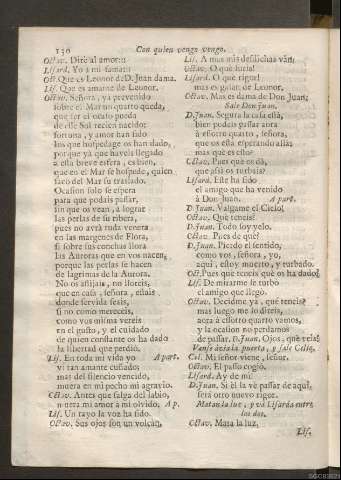 130
Con quien vengo vengo.
Octav. Dirè al amor:::
Lisard. Yo à mi fama:::
Oct. Que es Leonor de D. Juan dama.
Lis. Que es amante de Leonor.
Octav. Señora, ya prevenido
sobre el Mar un quarto queda,
que ser el ocaso pueda
de esse Sol recien nacido:
fortuna, y amor han sido
los que hospedage os han dado,
porque ya que haveis llegado
a esta breve esfera, es bien,
que en el Mar se hospede, quien
sacò del Mar su traslado.
Ocasion solo se espera
para que podais passar,
sin que os vean, à lograr
las perlas de su ribera,
pues no avrà ruda venera
en las margenes de Flora,
si sobre sus conchas llora
los Auroras que en vos nacen,
porque las perlas se hacen
de lagrimas de la Aurora.
No os aflijais, no lloreis,
que en casa, señora, estais
donde servida seais,
si no como mereceis,
como vos misma vereis
en el gusto, y el cuidado
de quien constante os ha dado
la libertad que perdiò.
Lis. En toda mi vida yo A part.
vi tan amante cuñado;
mas del silencio vencido,
muera en mi pecho mi agravio.
Octav. Antes que salga del labio,
muera mi amor à mi olvido. A p.
Lis. Un rayo la voz ha sido.
Octav. Sus ojos son un volcàn.
Lis. A mas mis desdichas vàn.
Octav. O què furia!
Lisard. O què rigor!
mas es galàn de Leonor.
Octav. Mas es dama de Don Juan.
Sale Don Juan.
D. Juan. Segura la casa està,
bien podeis passar aora
à essotro quarto, señora,
que os està esperando allà;
mas què es esto?
Octav. Pues què os dà,
que assi os turbais?
Lisard. Este ha sido
el amigo que ha venido
à Don Juan. A part.
D. Juan. Valgame el Cielo!
Octav. Què teneis?
D. Juan. Todo soy yelo.
Octav. Pues de què?
D. Juan. Pierdo el sentido,
como vos, señora, yo,
aqui, estoy muerto, y turbado.
Oct. Pues què teneis què os ha dado?
Lis. De mirarme se turbò
el amigo que llegò.
Octav. Decidme ya, què teneis?
mas luego me lo direis,
aora à essotro quarto vamos,
y la ocasion no perdamos
de passar. D. Juan. Ojos, què veis?
Vanse àcia la puerta, y sale Celia.
Cel. Mi señor viene, señor.
Octav. El passo cogiò.
Lisard. Ay de mi!
D. Juan. Si èl la vè passar de aqui,
serà otro nuevo rigor.
Matan la luz, y và Lisarda entre
los dos.
Octav. Mata la luz.
Lis.